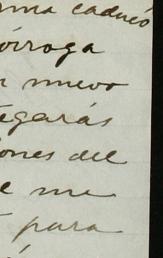 rma caducó
órroga
n nuevo
tegarás
ones del
e me
para